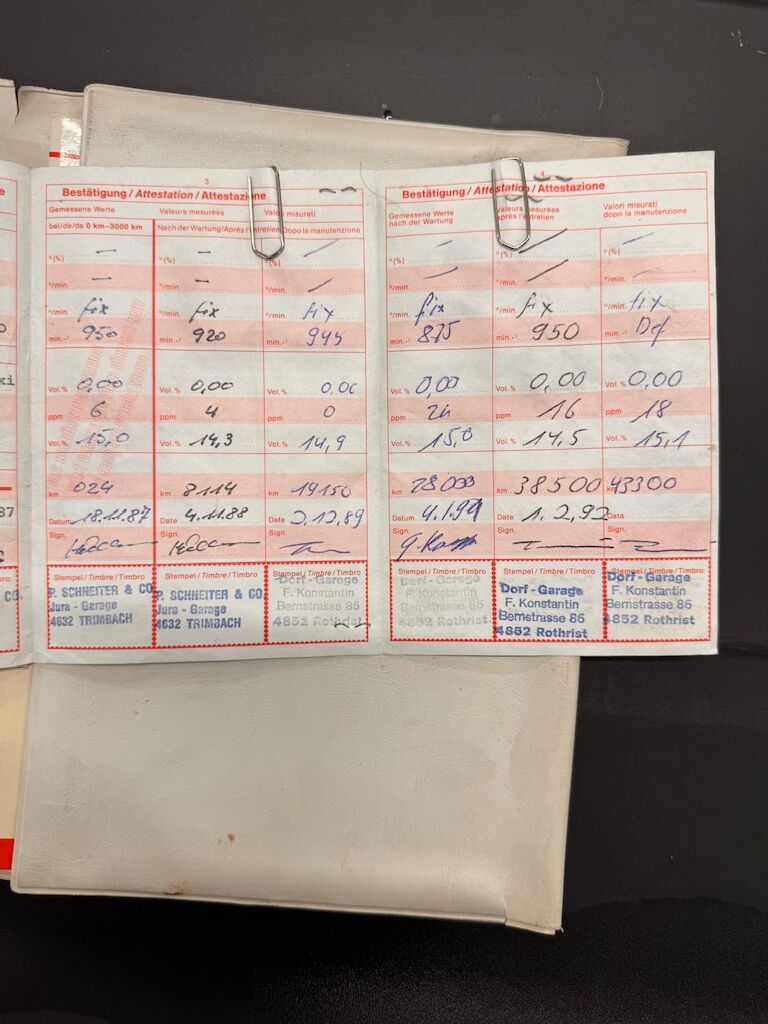 3
Bestätigung / Attestation / Attestazione
Gemessene Werte Valeurs mesurées Valori misurati
bei/de/da 0 km–3000 km Nach der Wartung/Après l'entretien/Dopo la manutenzione
°(%) °(%)
°/min. °/min.
fix fix fix
950 min.-¹ 920 min.-¹ 945
0,00 Vol.% 0,00 Vol.% 0,00
6 ppm 4 ppm 0
15,0 Vol.% 14,3 Vol.% 14,9
024 km 8114 km 19150
Datum 18.11.87 Date 4.11.88 Data 2.12.89
Sign. Sign. Sign.
Stempel / Timbre / Timbro Stempel / Timbre / Timbro Stempel / Timbre / Timbro
P. SCHNEITER & CO.
Jura - Garage
4632 TRIMBACH
P. SCHNEITER & CO.
Jura - Garage
4632 TRIMBACH
Dorf - Garage
F. Konstantin
Bernstrasse 86
4852 Rothrist
4
Bestätigung / Attestation / Attestazione
Gemessene Werte Valeurs mesurées Valori misurati
nach der Wartung après l'entretien dopo la manutenzione
°(%) °(%) °(%)
°/min. °/min. °/min.
fix fix fix
min.-¹ 875 min.-¹ 950 min.-¹ Def
Vol.% 0,00 Vol.% 0,00 Vol.% 0,00
ppm ppm 16 ppm 18
Vol.% 15,0 Vol.% 14,5 Vol.% 15,1
km 28000 km 38500 km 43300
Datum Date 1.2.92 Data
Sign. Sign. Sign.
Stempel / Timbre / Timbro Stempel / Timbre / Timbro Stempel / Timbre / Timbro
Dorf - Garage
F. Konstantin
Bernstrasse 86
4852 Rothrist
Dorf - Garage
F. Konstantin
Bernstrasse 86
4852 Rothrist
Dorf - Garage
F. Konstantin
Bernstrasse 86
4852 Rothrist